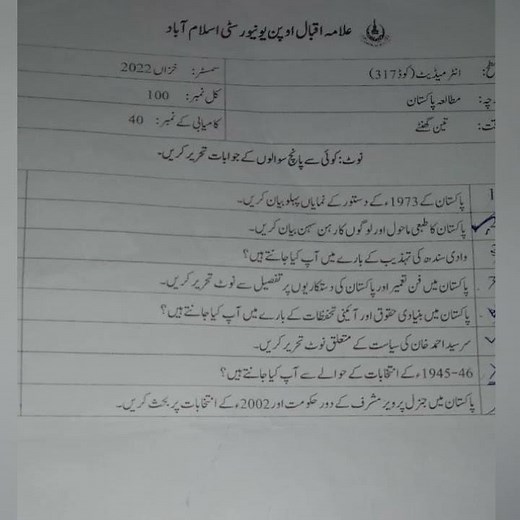 علامہ اقبال اوپن یونیورسٹی اسلام آباد
طح: انٹرمیڈیٹ (کوڈ 317) سمسٹر: خزاں 2022
رچہ: مطالعہ پاکستان کل نمبر: 100
قت: تین گھنٹے کامیابی کے نمبر: 40
نوٹ: کوئی سے پانچ سوالوں کے جوابات تحریر کریں۔
پاکستان کے 1973ء کے دستور کے نمایاں پہلو بیان کریں۔
پاکستان کا طبعی ماحول اور لوگوں کا رہن سہن بیان کریں۔
وادی سندھ کی تہذیب کے بارے میں آپ کیا جانتے ہیں؟
پاکستان میں فن تعمیر اور پاکستان کی دستکاریوں پر تفصیل سے نوٹ تحریر کریں۔
پاکستان میں بنیادی حقوق اور آئینی تحفظات کے بارے میں آپ کیا جانتے ہیں؟
سر سید احمد خان کی سیاست کے متعلق نوٹ تحریر کریں۔
1945-46ء کے انتخابات کے حوالے سے آپ کیا جانتے ہیں؟
پاکستان میں جنرل پرویز مشرف کے دور حکومت اور 2002ء کے انتخابات پر بحث کریں۔